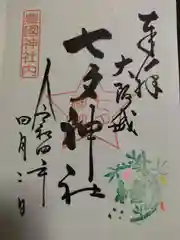 奉拝
大阪城
七夕神社
令和四年
四月二日
豊國神社内